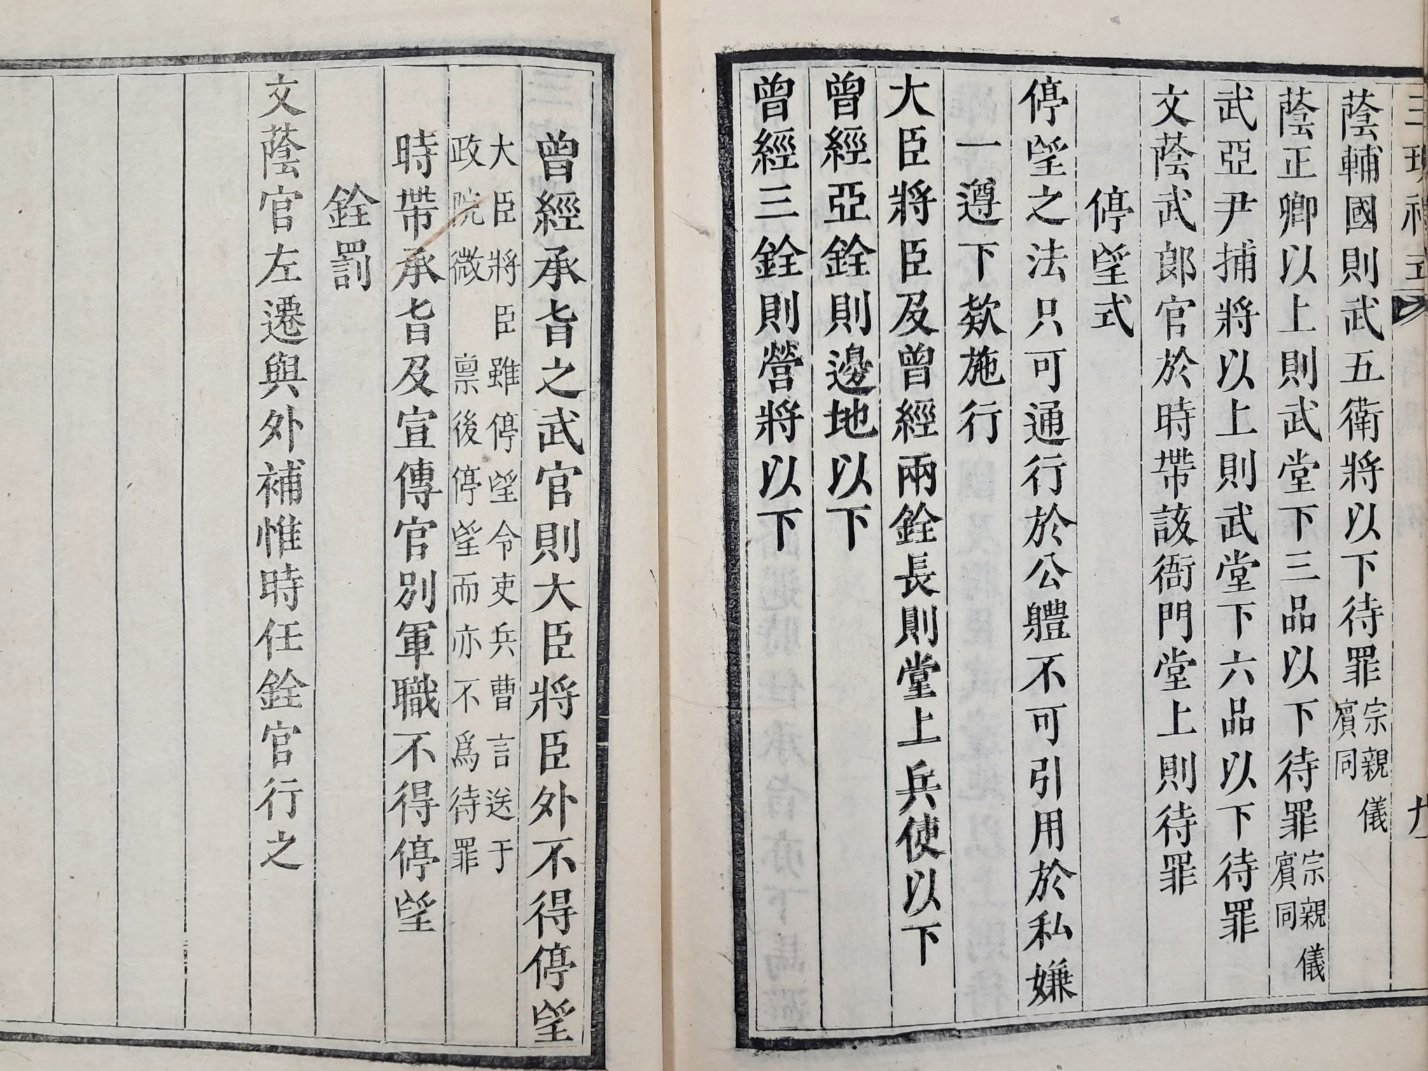 蔭輔國則武五衛將以下待罪宗親儀賓同
蔭正卿以上則武堂下三品以下待罪宗親儀賓同
武亞尹捕將以上則武堂下六品以下待罪
文蔭武郎官於時帶該衙門堂上則待罪
停望式
停望之法只可通行於公體不可引用於私嫌
一遵下欵施行
大臣將臣及曾經兩銓長則堂上兵使以下
曾經亞銓則邊地以下
曾經三銓則營將以下
曾經承旨之武官則大臣將臣外不得停望
大臣將臣雖停望令吏兵曹言送于
政院微 稟後停望而亦不爲待罪
時帶承旨及宣傳官別軍職不得停望
銓罰
文蔭官左遷與外補惟時任銓官行之